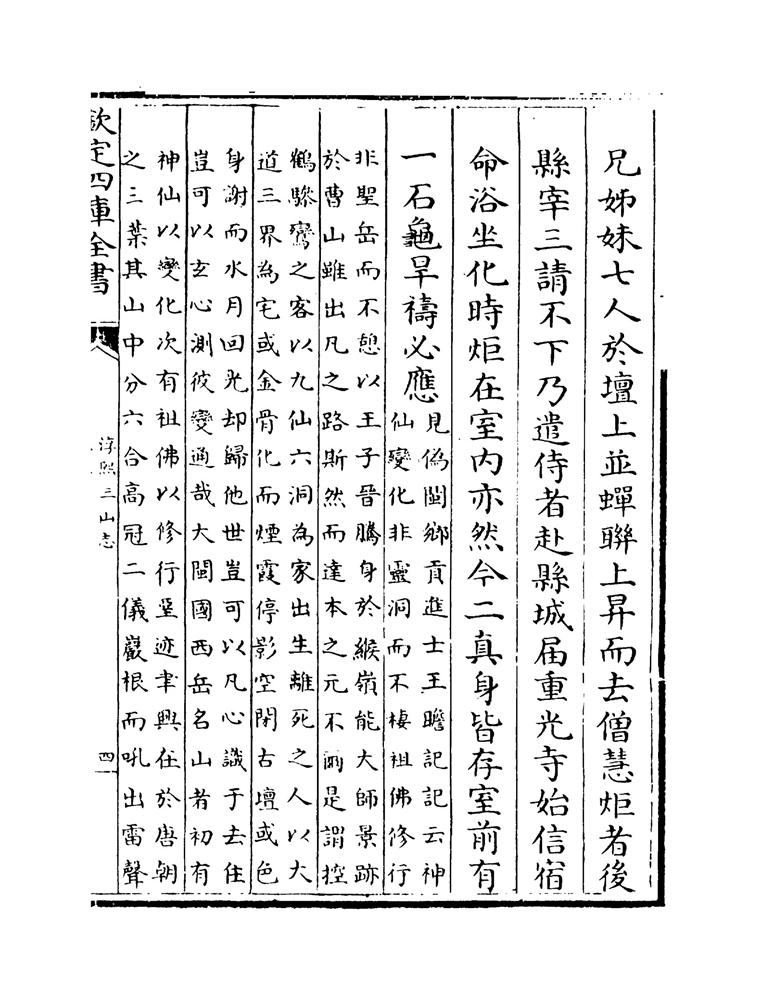 兄姊妹七人於壇上並蟬聯上昇而去僧慧炬者後
縣宰三請不下乃遣侍者赴縣城届重光寺始信宿
命浴坐化時炬在室内亦然今二真身皆存室前有
一石龜旱禱必應
見偽閩鄉貢進士王瞻記記云神
仙變化非靈洞而不棲祖佛修行
非聖岳而不憩以王子晉騰身於緱嶺能大師景跡
於曹山雖出凡之路斯然而達本之元不爾是謂控
鶴驂鸞之客以九仙六洞為家出生離死之人以大
道三界為宅或金骨化而煙霞停影空閉古壇或色
身謝而水月回光却歸他世豈可以凡心識于去住
豈可以玄心測彼變通哉大閩國西岳名山者初有
神仙以變化次有祖佛以修行垩迹聿興在於唐朝
之三葉其山中分六合高冠二儀巖根而吼出雷聲
欽定四庫全書
淳熙三山志
四